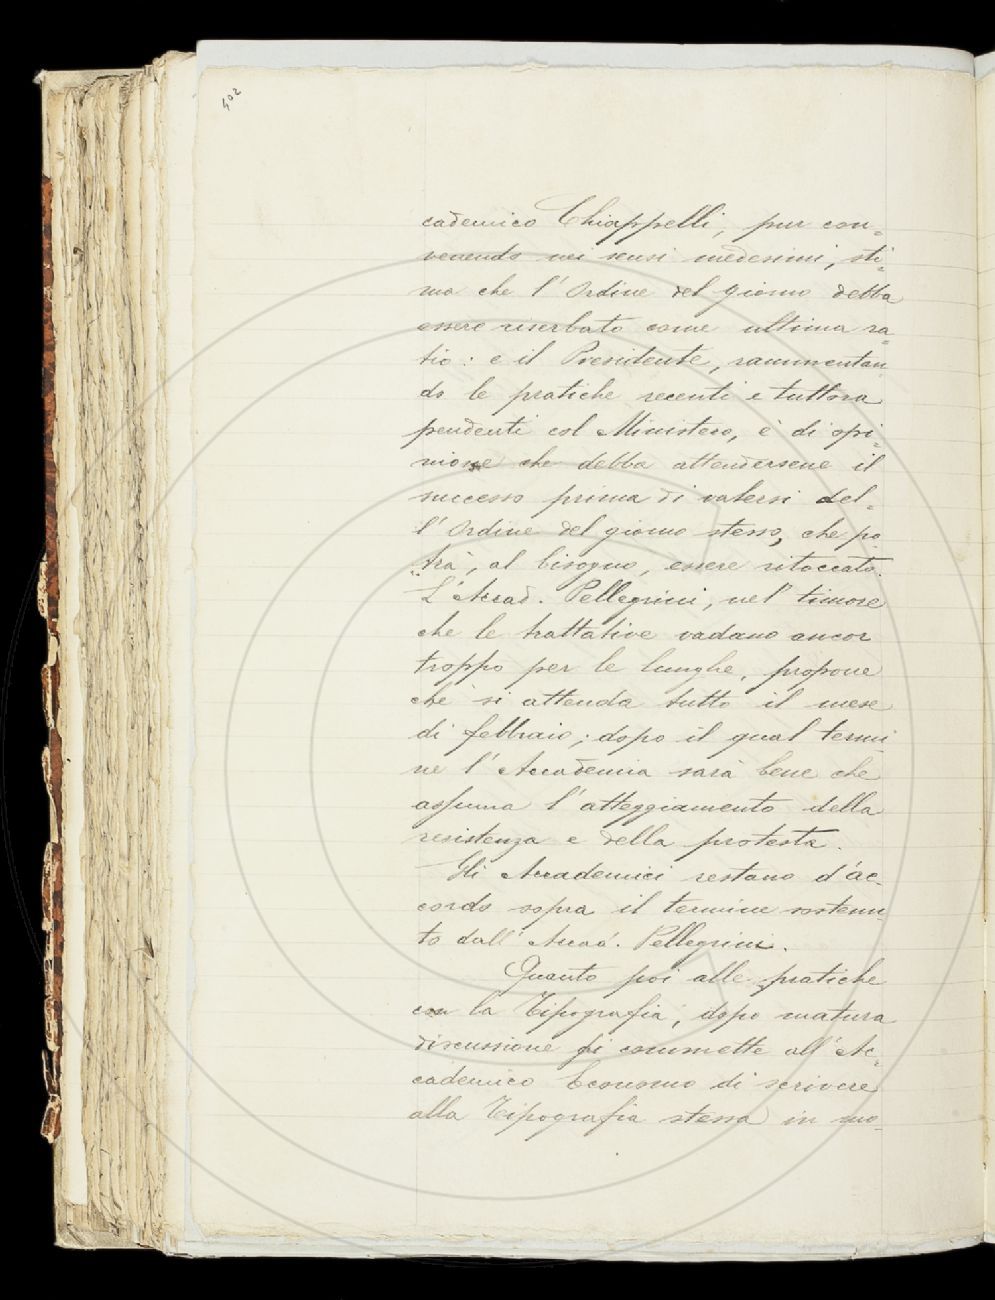 402
cademico Chiappelli, pur con-
venendo nei sensi medesimi, sti-
ma che l'Ordine del giorno debba
essere riserbato come ultima ra-
tio: e il Presidente, rammentan-
do le pratiche recenti e tuttora
pendenti col Ministero, è di opi-
nione che debba attendersene il
successo prima di valersi del-
l'Ordine del giorno stesso, che po-
trà, al bisogno, essere ritoccato.
L'Accad. Pellegrini, nel timore
che le trattative vadano ancor
troppo per le lunghe, propone
che si attenda tutto il mese
di febbraio; dopo il qual termi-
ne l'Accademia sarà bene che
assuma l'atteggiamento della
resistenza e della protesta.
Gli Accademici restano d'ac-
cordo sopra il termine sostenu-
to dall'Accad. Pellegrini.
Quanto poi alle pratiche
con la Tipografia, dopo matura
discussione si commette all'Ac-
cademico Economo di scrivere
alla Tipografia stessa in mo-